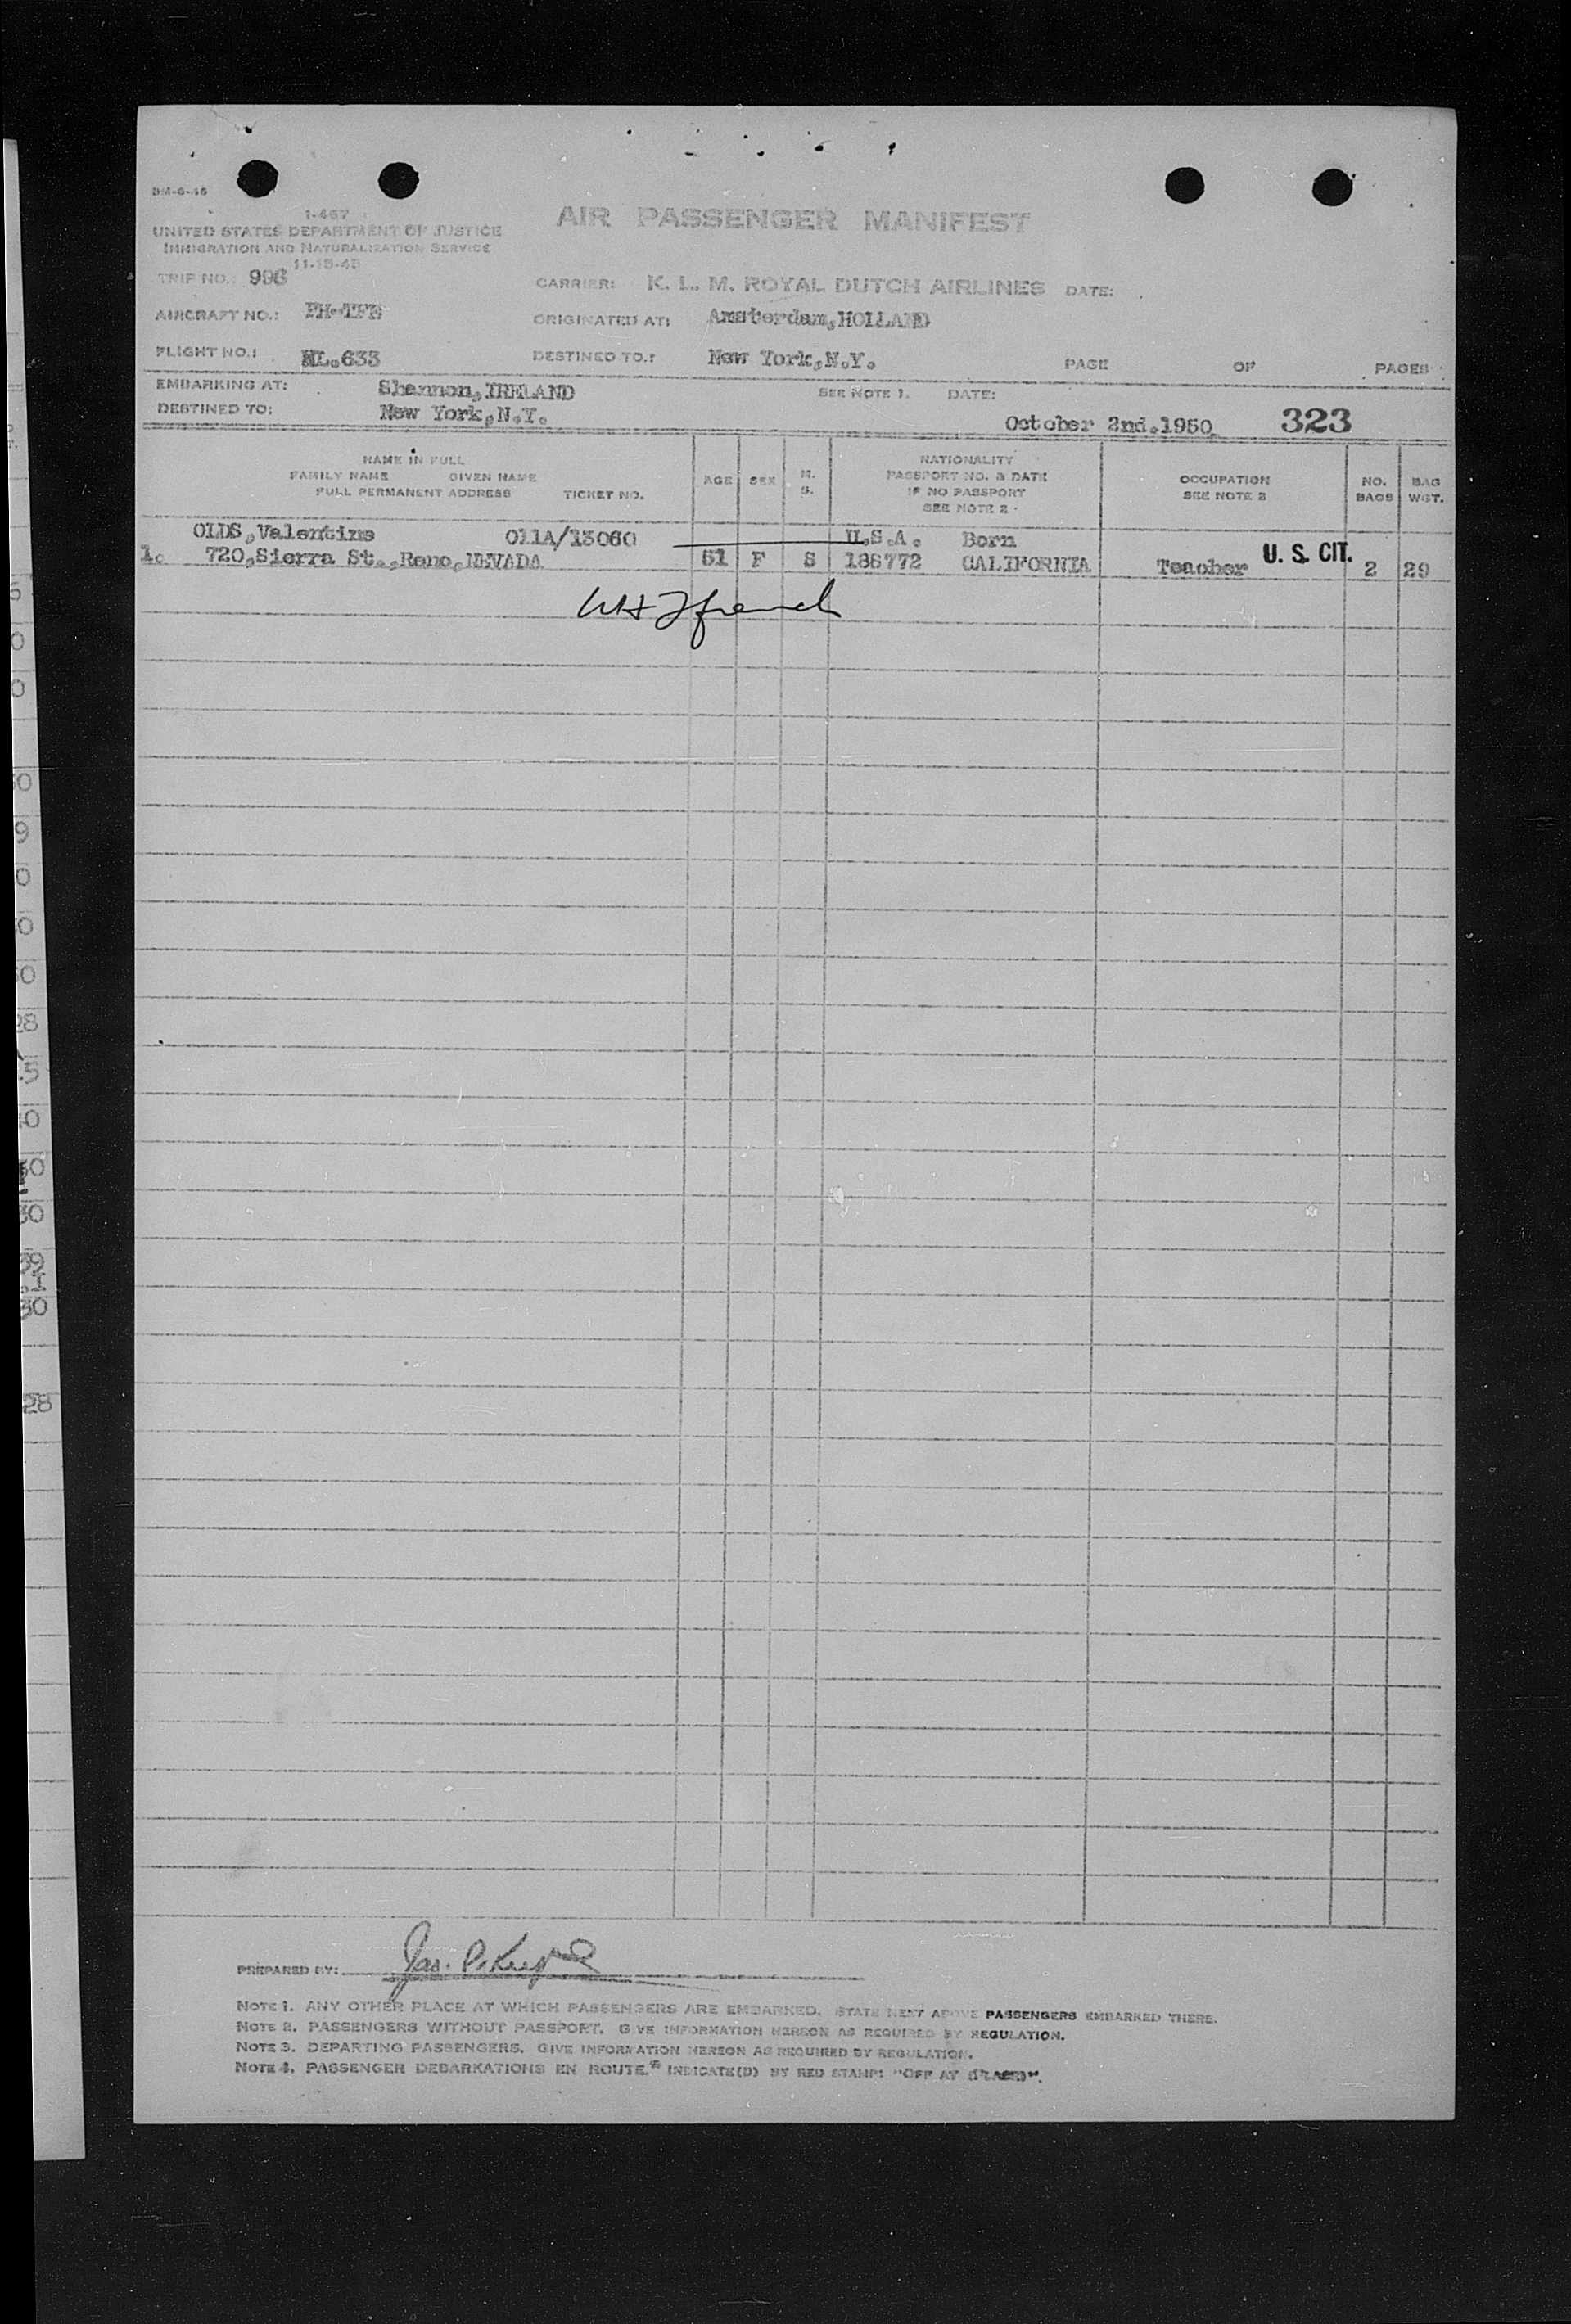 BM-6-46
1-467
UNITED STATES DEPARTMENT OF JUSTICE
IMMIGRATION AND NATURALIZATION SERVICE
11-15-45
AIR PASSENGER MANIFEST
TRIP NO.: 996
CARRIER: K. L. M. ROYAL DUTCH AIRLINES DATE:
AIRCRAFT NO.: PH-TFE
ORIGINATED AT: Amsterdam,HOLLAND
FLIGHT NO.: KL.633
DESTINED TO.: New York,N.Y.
PAGE OF PAGES
EMBARKING AT: Shannon,IRELAND
SEE NOTE 1. DATE:
DESTINED TO: New York,N.Y.
October 2nd.1950. 323
NAME IN FULL
FAMILY NAME GIVEN NAME
FULL PERMANENT ADDRESS TICKET NO.
AGE SEX M. S.
NATIONALITY
PASSPORT NO. & DATE
IF NO PASSPORT
SEE NOTE 2
OCCUPATION
SEE NOTE 3
NO. BAGS
BAG WGT.
OLDS,Valentine 011A/13060 U.S.A. Born
1. 720,Sierra St.,Reno,NEVADA 51 F S 186772 CALIFORNIA Teacher U. S. CIT. 2 29
PREPARED BY: Jas. P.
NOTE 1. ANY OTHER PLACE AT WHICH PASSENGERS ARE EMBARKED. STATE NEXT ABOVE PASSENGERS EMBARKED THERE.
NOTE 2. PASSENGERS WITHOUT PASSPORT. GIVE INFORMATION HEREON AS REQUIRED BY REGULATION.
NOTE 3. DEPARTING PASSENGERS. GIVE INFORMATION HEREON AS REQUIRED BY REGULATION.
NOTE 4. PASSENGER DEBARKATIONS EN ROUTE. INDICATE(D) BY RED STAMP: "OFF AT (PLACE)".